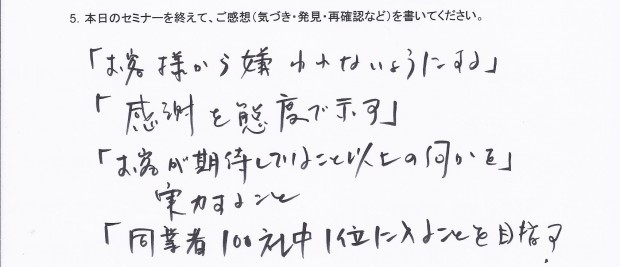 5. 本日のセミナーを終えて、ご感想(気づき・発見・再確認など)を書いてください。
「お客様から嫌われないようにする」
「感謝を態度で示す」
「お客が期待していること以上の何かを」
実力すること
「同業者100社中1位に入ることを目指す